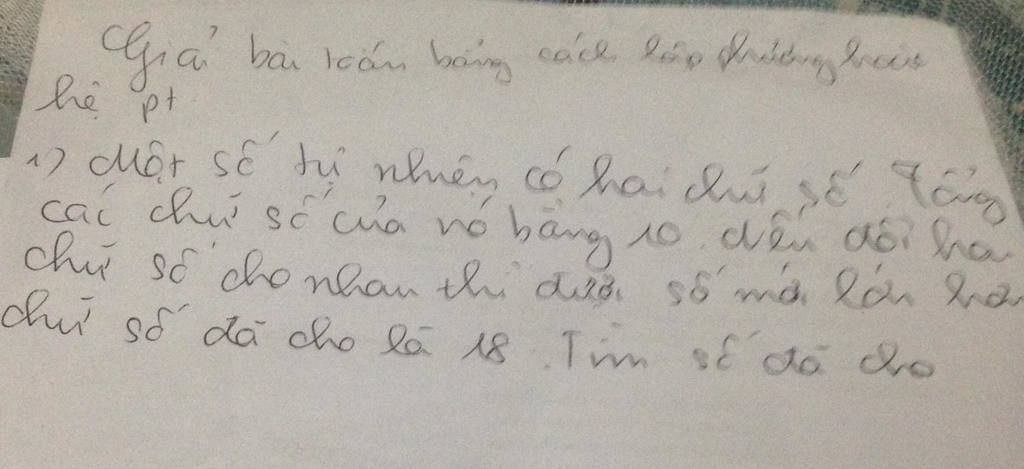 Giải bài toán bằng cách lập phương hoặc
hệ pt
1) Một số tự nhiên có hai chữ số. Tổng
các chữ số của nó bằng 10. Nếu đổi hai
chữ số cho nhau thì được số mới lớn hơn
chữ số đã cho là 18. Tìm số đã cho